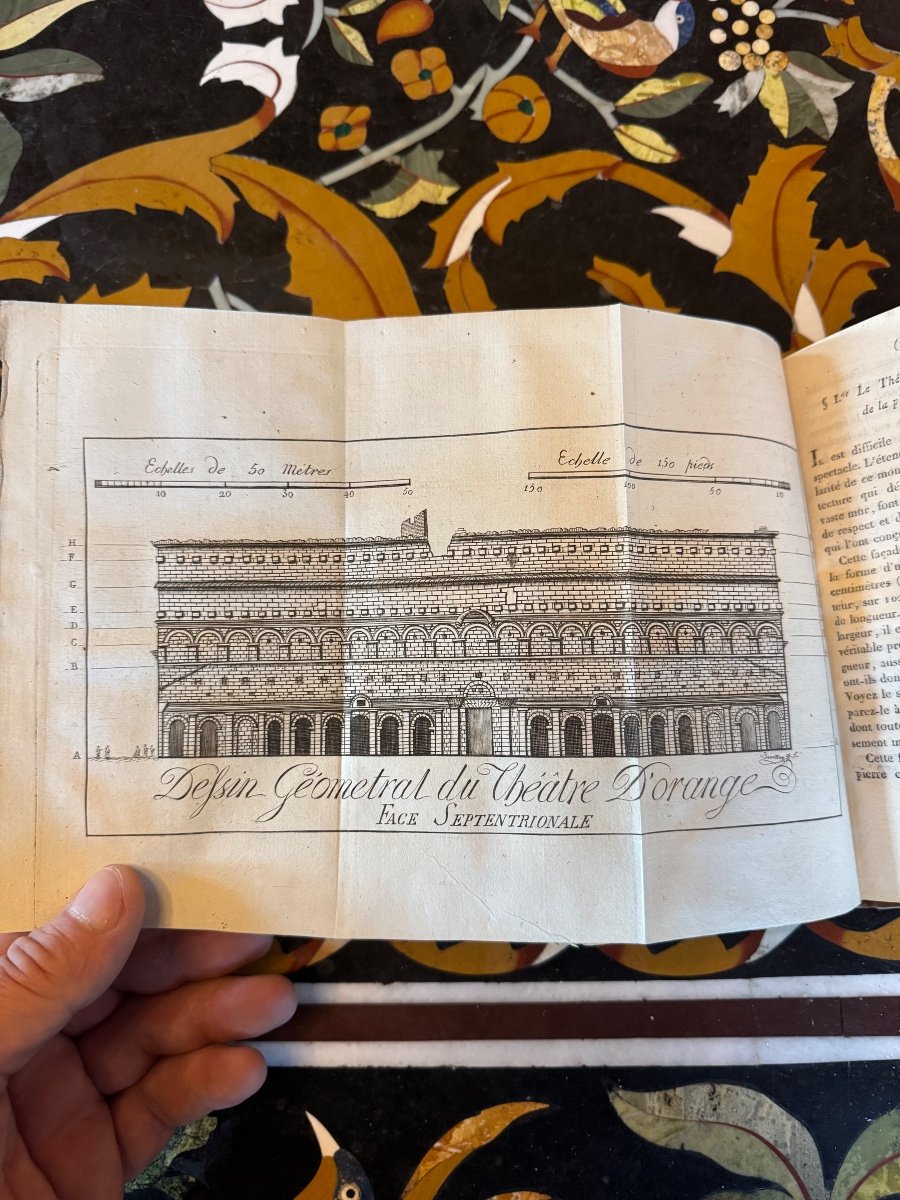 Echelles de 50 Métres
10 20 30 40 50
Echelle de 150 pieds
150 100 50 10
H
F
G
E
D
C
B
A
Deſsin Géometral du Théâtre D'orange
FACE SEPTENTRIONALE
(
§ I.er Le Thé
de la p
IL est difficile
spectacle. L'éten
larité de ce mon
tecture qui dé
vaste mur, font
de respect et d
qui l'ont conç
Cette façad
la forme d'u
centimètres (
teur, sur 10
de longueur.
largeur, il e
véritable pro
gueur, aus
ont-ils don
Voyez le s
parez-le à
dont tout
sement m
Cette f
pierre c